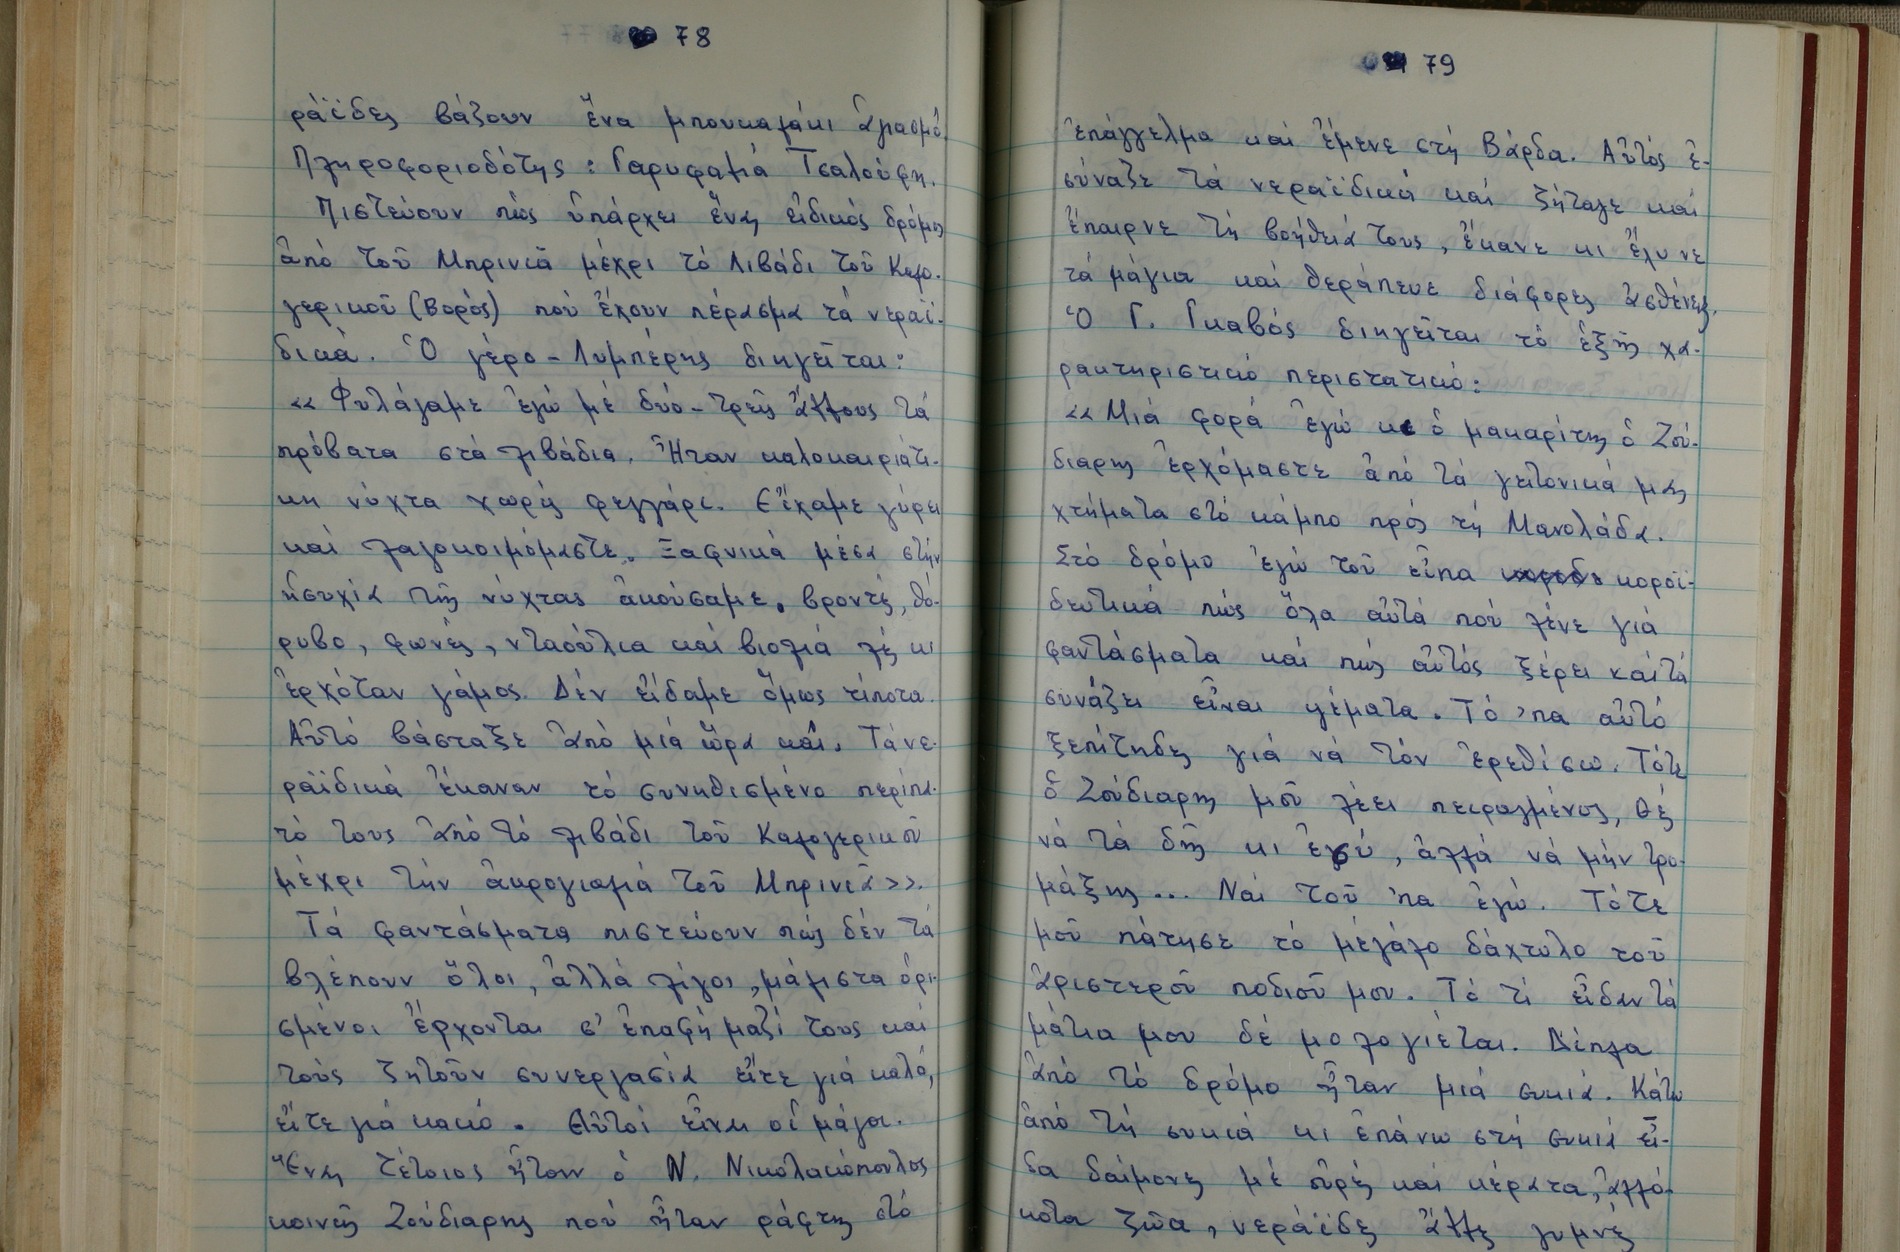 78
ράϊδες βάζουν ἕνα μπουκαλάκι ἁγιασμό.
Πληροφοριοδότης: Γαρυφαλιά Τσαλούφη.
Πιστεύουν πώς ὑπάρχει ἕνας εἰδικός δρόμος
ἀπό τοῦ Μπρινιᾶ μέχρι τό Λιβάδι τοῦ Καλο-
γερικοῦ (Βορός) πού ἔχουν πέρασμα τά νεραϊ-
δικά. Ὁ γέρο-Λυμπέρης διηγεῖται:
«Φυλάγαμε ἐγώ μέ δύο-τρεῖς ἄλλους τά
πρόβατα στά λιβάδια. Ἦταν καλοκαιριάτι-
κη νύχτα χωρίς φεγγάρι. Εἴχαμε γύρει
καί λαγοκοιμόμαστε. Ξαφνικά μέσα στήν
ἡσυχία τῆς νύχτας ἀκούσαμε. βροντές, θό-
ρυβο, φωνές, νταούλια καί βιολιά λές κι
ἐρχόταν γάμος. Δέν εἴδαμε ὅμως τίποτα.
Αὐτό βάσταξε ἀπό μιά ὥρα καί. Τά νε-
ραϊδικά ἔκαναν τό συνηθισμένο περίπα-
τό τους ἀπό τό λιβάδι τοῦ Καλογερικοῦ
μέχρι τήν ἀκρογιαλιά τοῦ Μπρινιᾶ».
Τά φαντάσματα πιστεύουν πώς δέν τά
βλέπουν ὅλοι, ἀλλά λίγοι, μάλιστα ὁρι-
σμένοι ἔρχονται σ' ἐπαφή μαζί τους καί
τούς ζητοῦν συνεργασία εἴτε γιά καλό,
εἴτε γιά κακό. Αὐτοί εἶναι οἱ μάγοι.
Ἕνας τέτοιος ἦταν ὁ Ν. Νικολακόπουλος
κοινῶς Ζούδιαρης πού ἦταν ράφτης στό
79
ἐπάγγελμα καί ἔμενε στή Βάρδα. Αὐτός ἐ-
σύναζε τά νεραϊδικά καί ζήταγε καί
ἔπαιρνε τή βοήθειά τους, ἔκανε κι ἔλυνε
τά μάγια καί θεράπευε διάφορες ἀσθένειες.
Ὁ Γ. Γκαβός διηγεῖται τό ἑξῆς χα-
ρακτηριστικό περιστατικό:
«Μιά φορά ἐγώ κι ὁ μακαρίτης ὁ Ζού-
διαρης ἐρχόμαστε ἀπό τά γειτονικά μας
χτήματα στό κάμπο πρός τή Μανολάδα.
Στό δρόμο ἐγώ τοῦ εἶπα κοροϊ-
δευτικά πώς ὅλα αὐτά πού λένε γιά
φαντάσματα καί πώς αὐτός ξέρει καί τά
συνάζει εἶναι ψέματα. Τό 'πα αὐτό
ξεπίτηδες γιά νά τόν ἐρεθίσω. Τότε
ὁ Ζούδιαρης μοῦ λέει πειραγμένος, θές
νά τά δῆς κι ἐσύ, ἀλλά νά μήν τρο-
μάξης... Ναί τοῦ 'πα ἐγώ. Τότε
μοῦ πάτησε τό μεγάλο δάχτυλο τοῦ
ἀριστεροῦ ποδιοῦ μου. Τό τί εἶδαν τά
μάτια μου δέ μολογιέται. Δίπλα
ἀπό τό δρόμο ἦταν μιά συκιά. Κάτω
ἀπό τή συκιά κι ἐπάνω στή συκιά εἶ-
δα δαίμονες μέ οὐρές καί κέρατα, ἀλλό-
κοτα ζῶα, νεράϊδες ἄλλες γυμνές